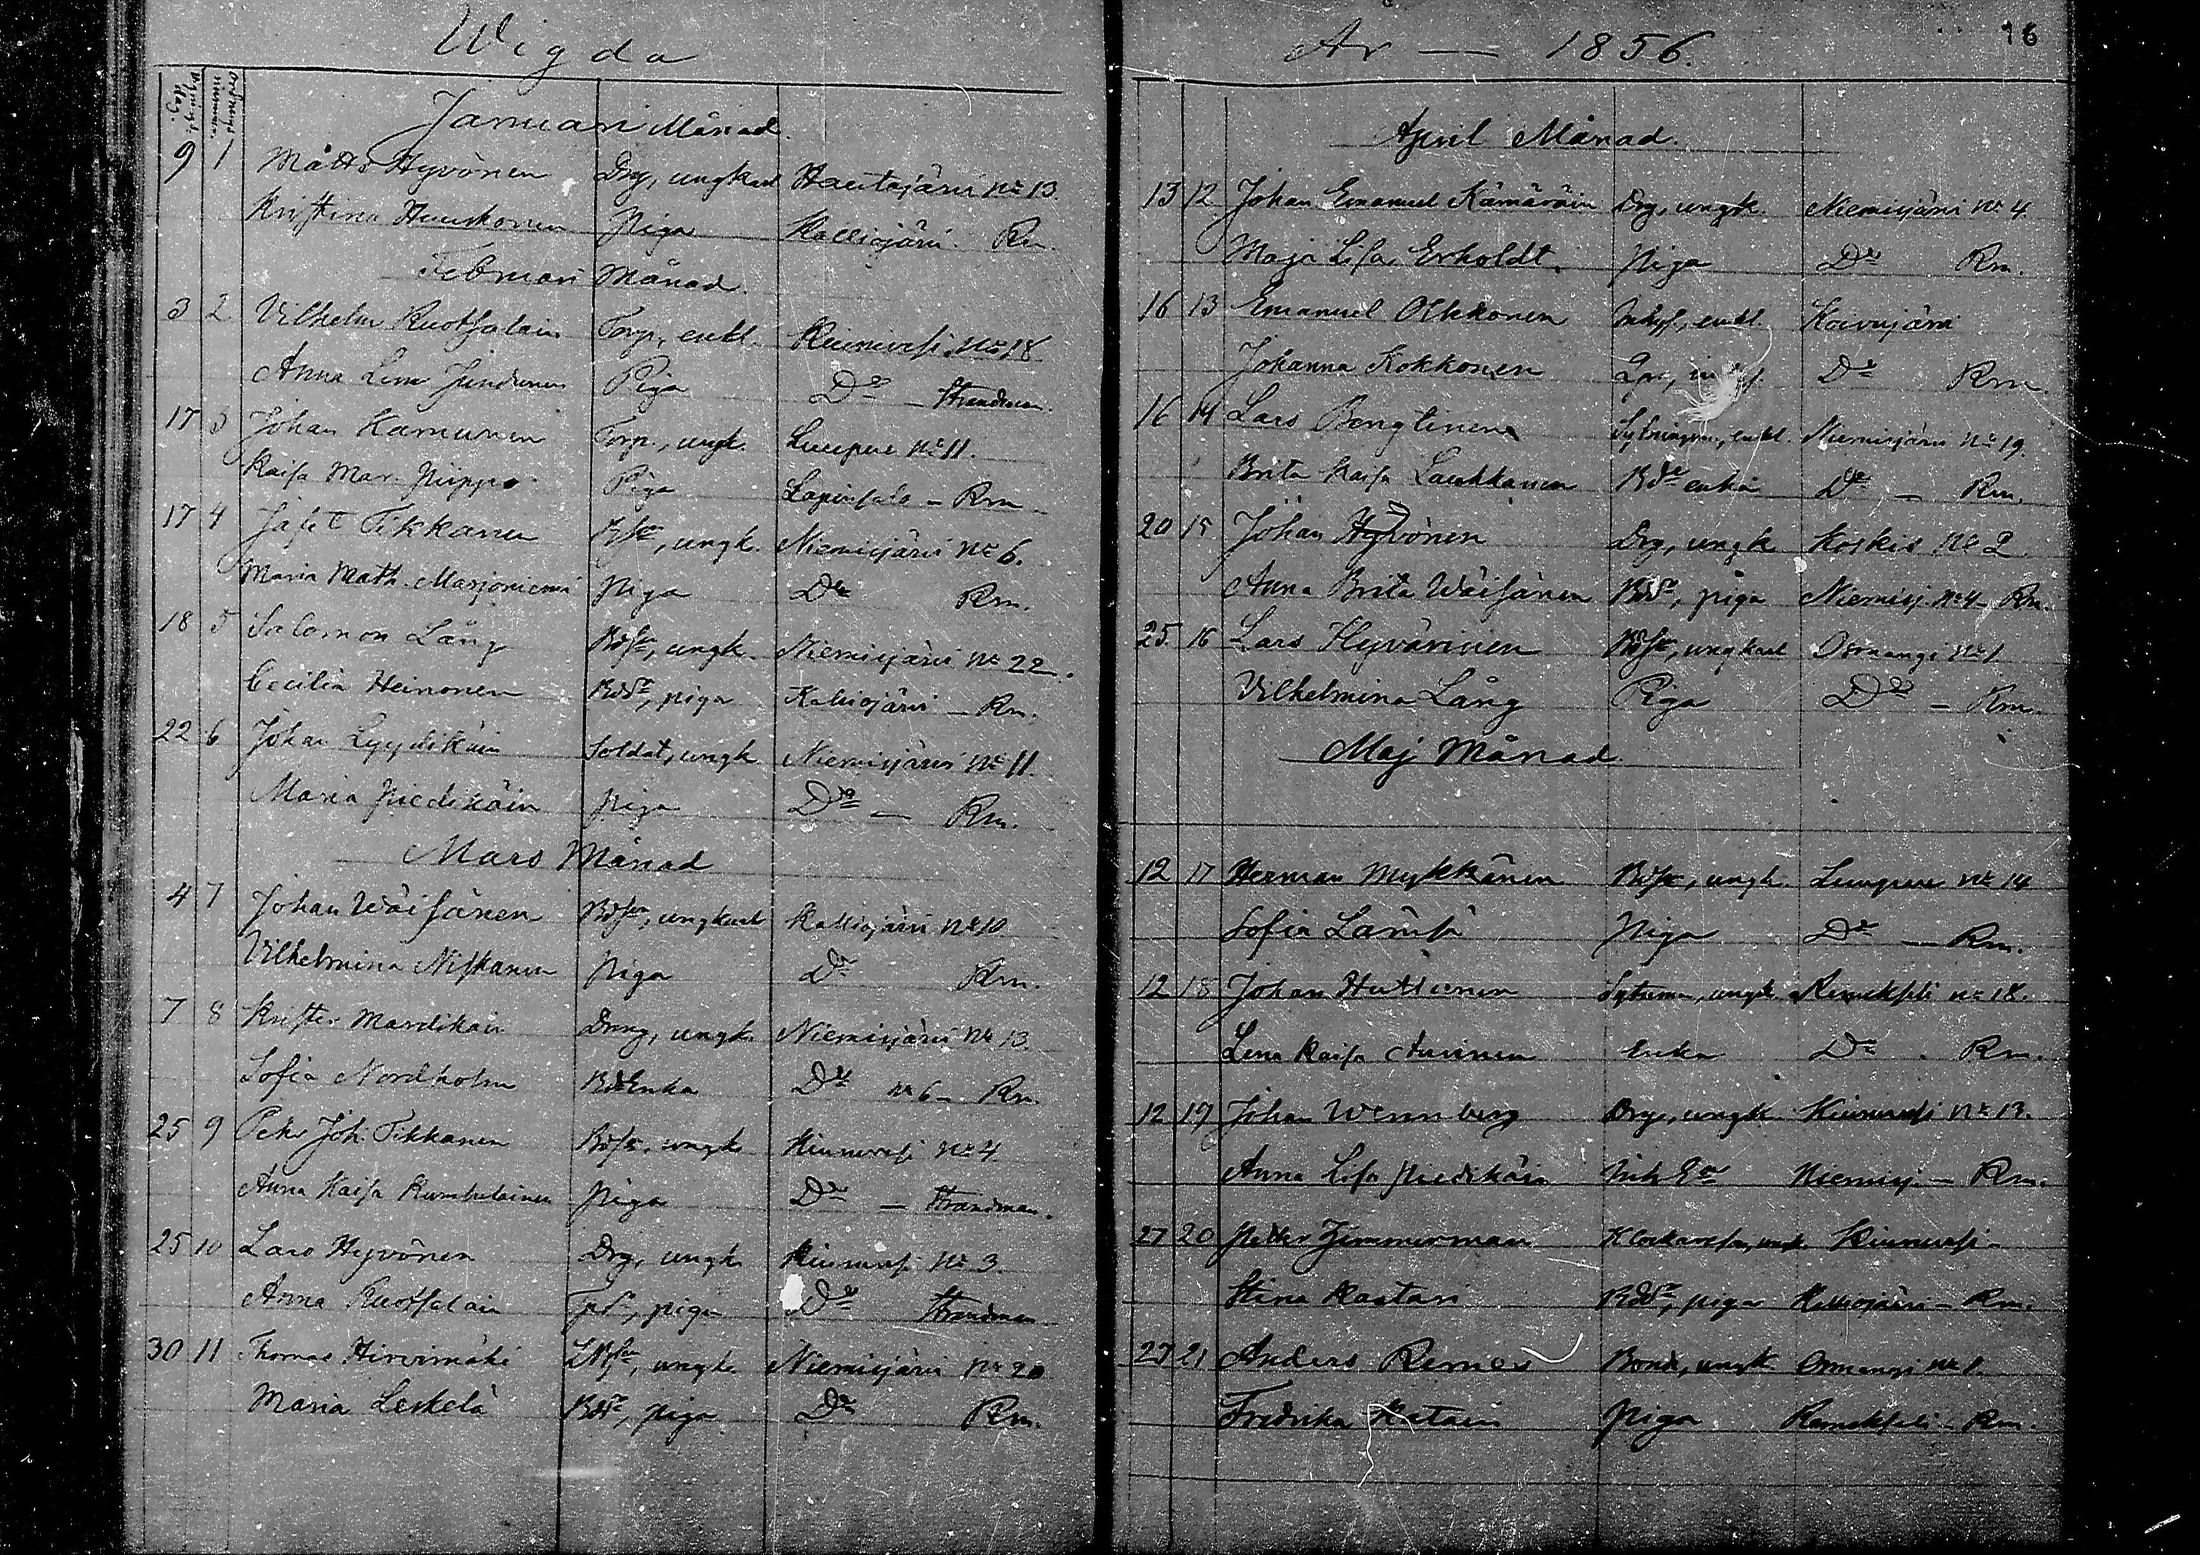 Wigda
Ordnings nummer.
Januari Månad.
9 1 Matts Hyvönen Drg, ungkarl Hautajärvi No 13.
Kristina Huuskonen Piga Kalliojärvi. Rm.
Februari Månad.
3 2 Vilhelm Ruotsalain Torp., enkl. Kiuruvesi No 18
Anna Lena Piga Do — Strandman.
17 3 Johan Kämunen Torp., ungk. Luupuv No 11.
Kaisa Mar. Piippo Piga Lapinsalo — Rm
17 4 Jafet Tikkanen Bson, ungk. Niemisjärvi No 6.
Maria Math. Marjoniemi Piga Do Rm.
18 5 Salomon Lång Bdson, ungk. Niemisjärvi No 22.
Cecilia Heinonen Bddr, piga Kalliojärvi — Rm.
22 6 Johan Lyydikäin Soldat, ungk Niemisjärvi No 11.
Maria Piedikäin Piga Do — Rm.
Mars Månad
4 7 Johan Wäisänen Bdson, ungkarl Kalliojärvi No 10
Vilhelmina Niskanen Piga Do Rm.
7 8 Krister Mardikain Dreng, ungk. Niemisjärvi No 13.
Sofia Nordholm BdEnka Do No 6 — Rm.
25 9 Petr Joh. Tikkanen Bdsn, ungk. Kiuruvesi No 4
Anna Kaisa Rumpulainen Piga Do — Strandman.
25 10 Lars Hyvönen Drg, ungk. Kiuruvesi No 3.
Anna Ruotsalain Tpdr, piga Do Strandman
30 11 Thomas Hirvimäki ungk. Niemisjärvi No 20
Maria Leskelä Bddr, piga Do Rm.
År — 1856.
16
April Månad.
13 12 Johan Emanuel Kämäräin Drg, ungk. Niemisjärvi No 4
Maja Lisa Erholdt. Piga Do Rm.
16 13 Emanuel Olkkonen Inhys., enkl. Koivujärvi
Johanna Kokkonen Do Rm
16 14 Lars Bengtinen Sytningsm, enkl. Niemisjärvi No 19.
Brita Kaisa Laukkanen Bde enka Do — Rm.
20 15 Johan Hyvönen Drg, ungk Koskis No 2
Anna Brita Wäisänen Bddr, piga Niemisj. No 4 — Rm.
25. 16 Lars Hyvärinen Bdson, ungkarl Osmangi No 1
Vilhelmina Lång Piga Do — Rm.
Maj Månad
12 17 Herman Mykkänen Bdsn, ungk. Luupuv No 14
Sofia Lämsä Piga Do — Rm.
12 18 Johan Huttunen Sytnm, ungk. Remeksele No 18.
Lena Kaisa Auvinen Enka Do . Rm.
12 19 Johan Wennberg Drg, ungk. Kiuruvesi No 13.
Anna Lisa Piedikäin Niemisj — Rm.
27 20 Petter Zimmerman Klockareson, ungk Kiuruvesi —
Stina Kastari Bddr, piga Kalliojärvi — Rm.
27 21 Anders Remes Bonde, ungk. Osmangi No 1.
Fredrika Katain Piga Remeksele — Rm.